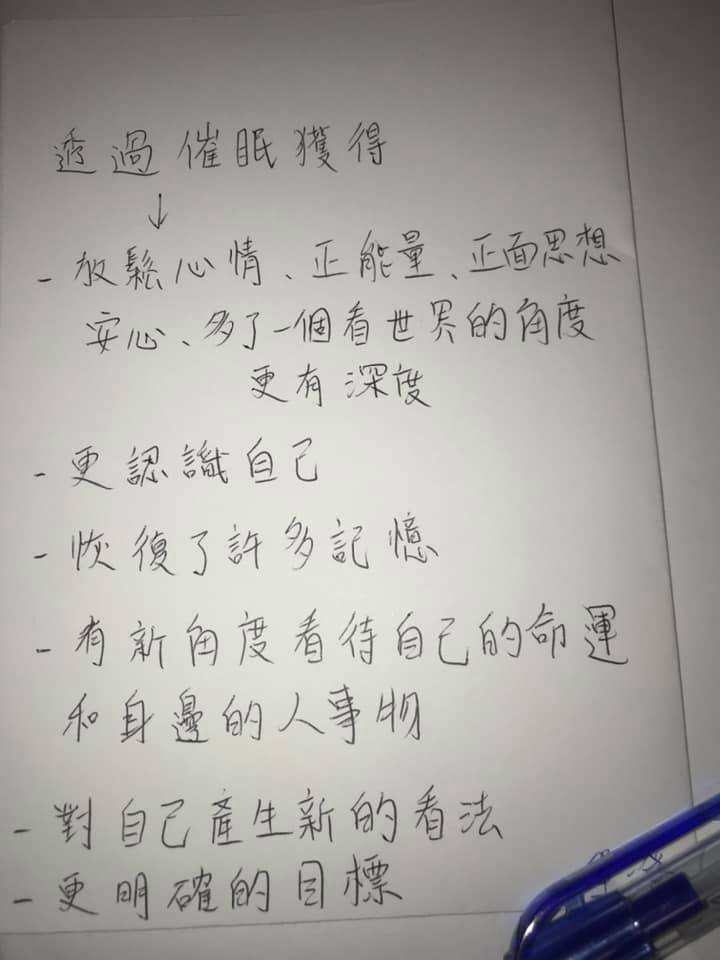 透過催眠獲得
↓
- 放鬆心情、正能量、正面思想
安心、多了一個看世界的角度
更有深度
- 更認識自己
- 恢復了許多記憶
- 有新角度看待自己的命運
和身邊的人事物
- 對自己產生新的看法
- 更明確的目標